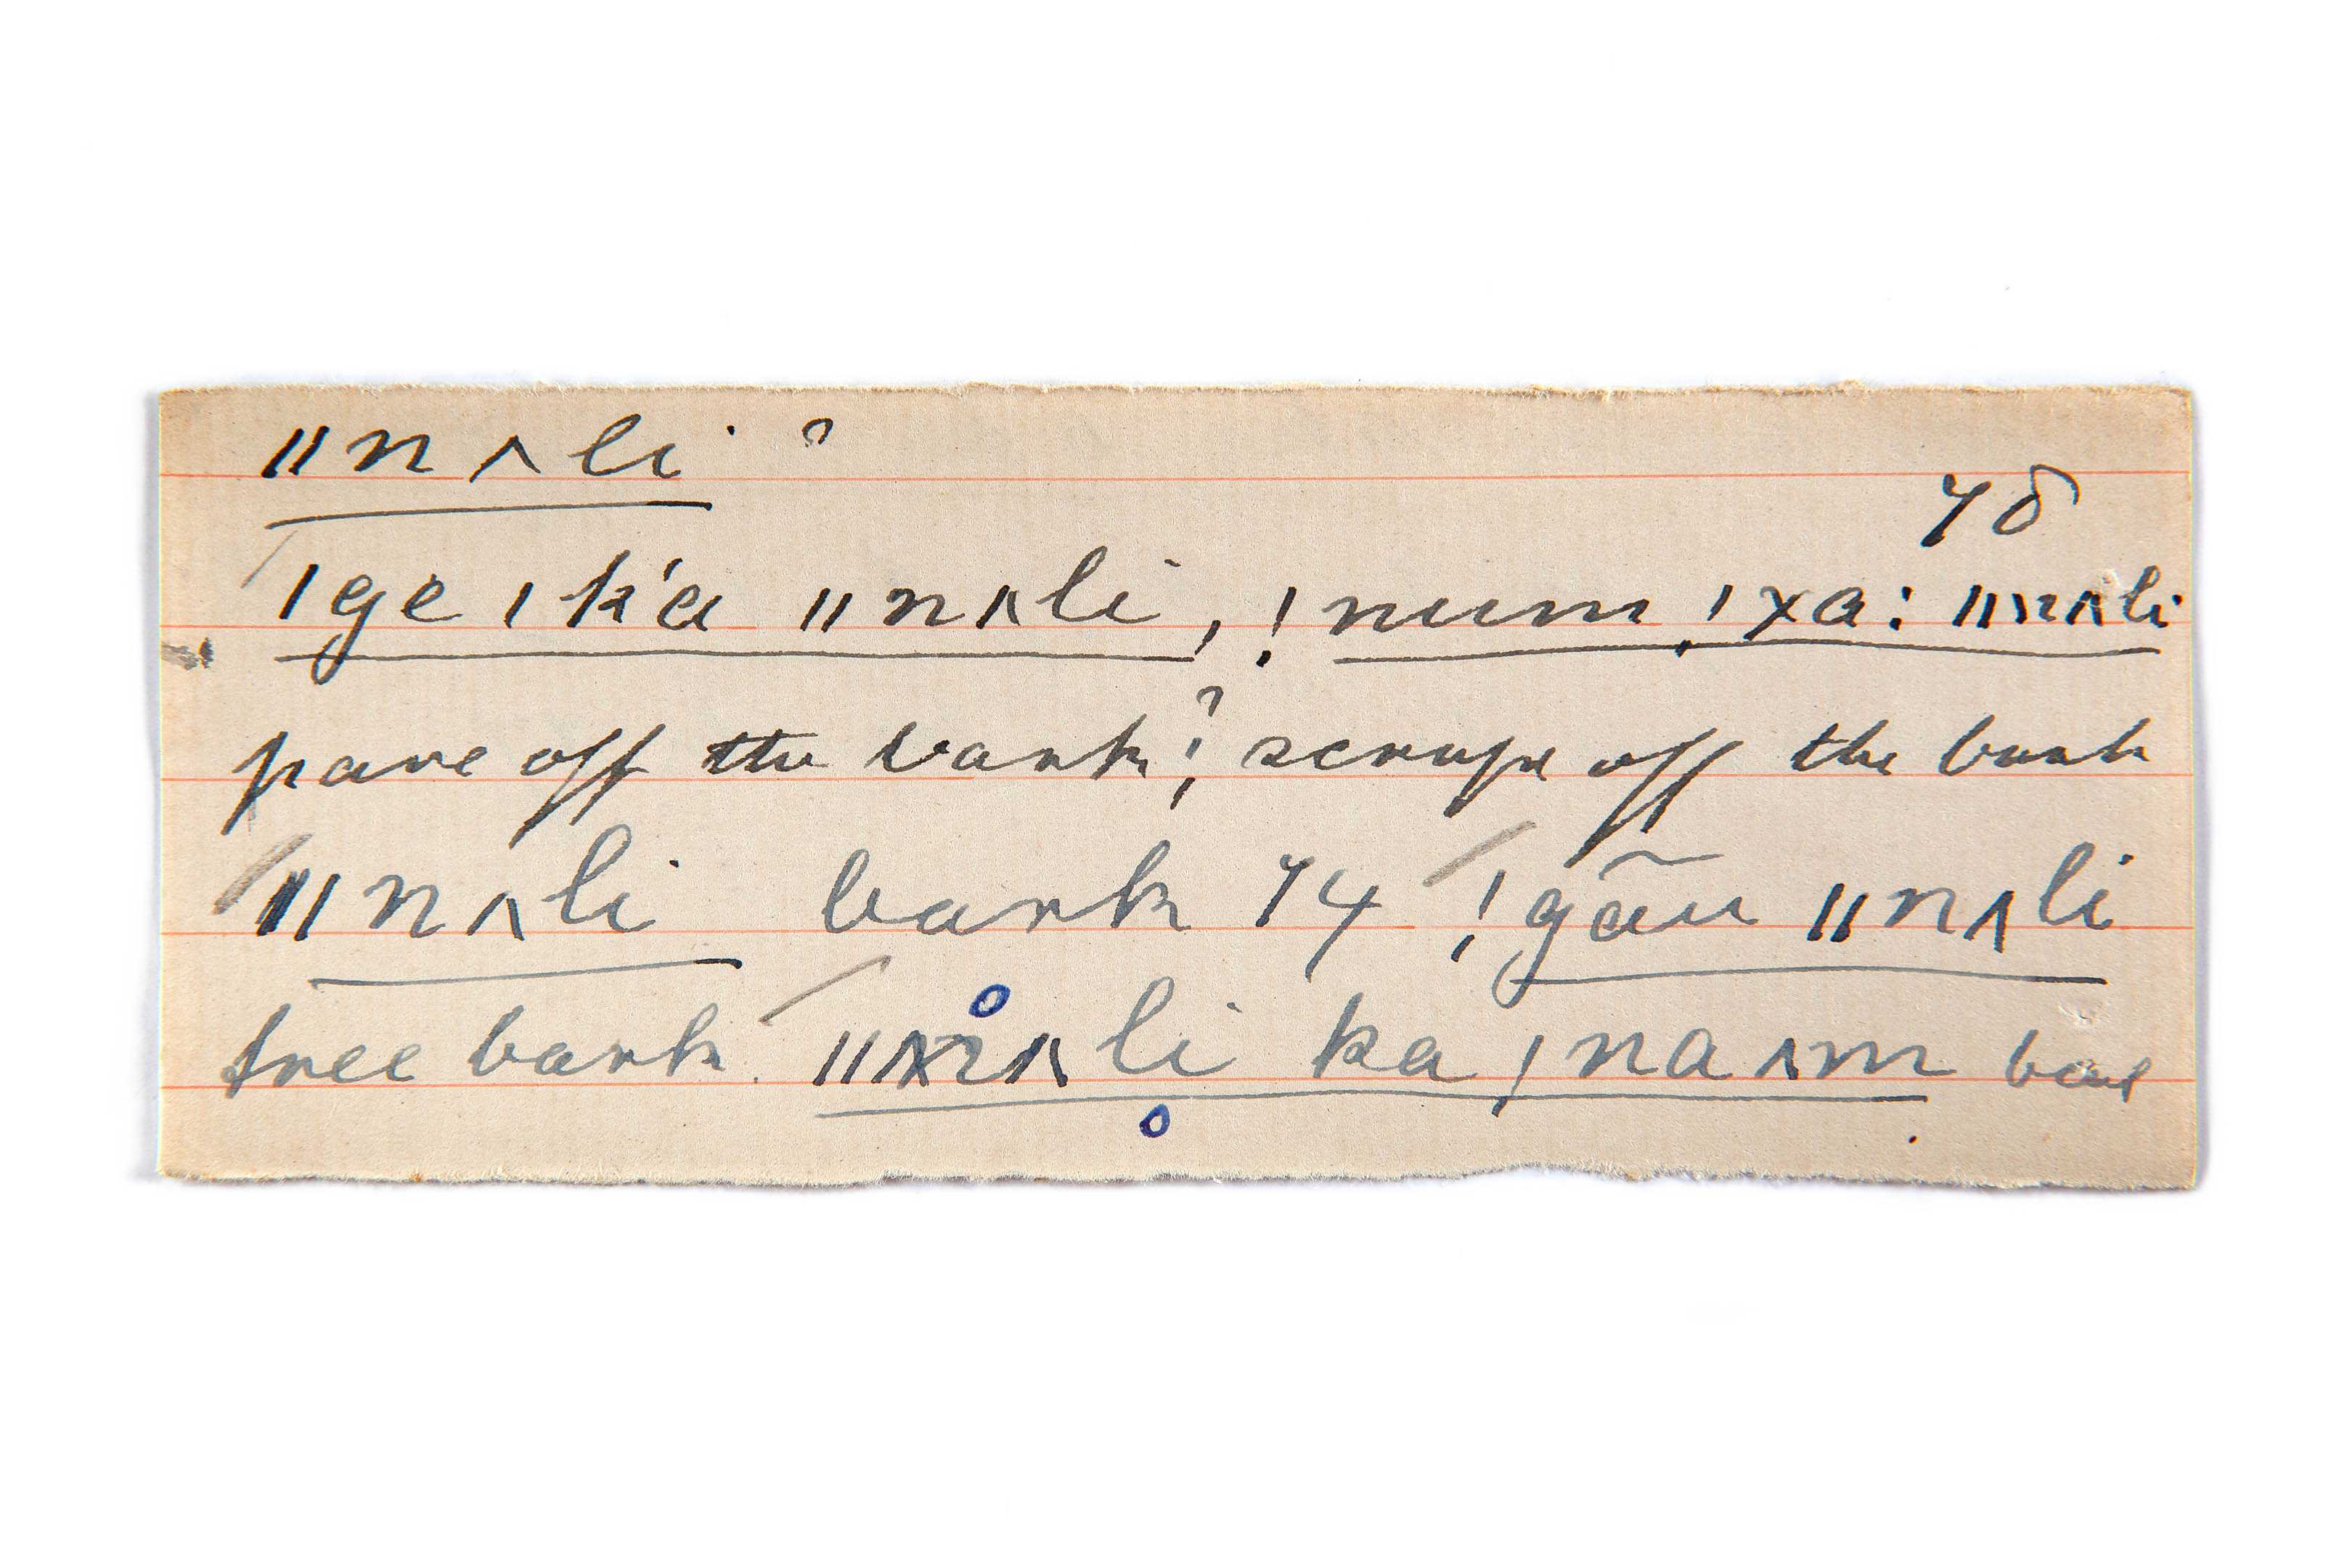 ǁnʌli ?
78
ǀge ǀk'a ǁnʌli, ! num ǃxa: ǁnʌli
pare off the bark; ? scrape off the bark
ǁnʌli bark 74 !gãu ǁnʌli
tree bark. ǁnʌli ka ǀnaʌm